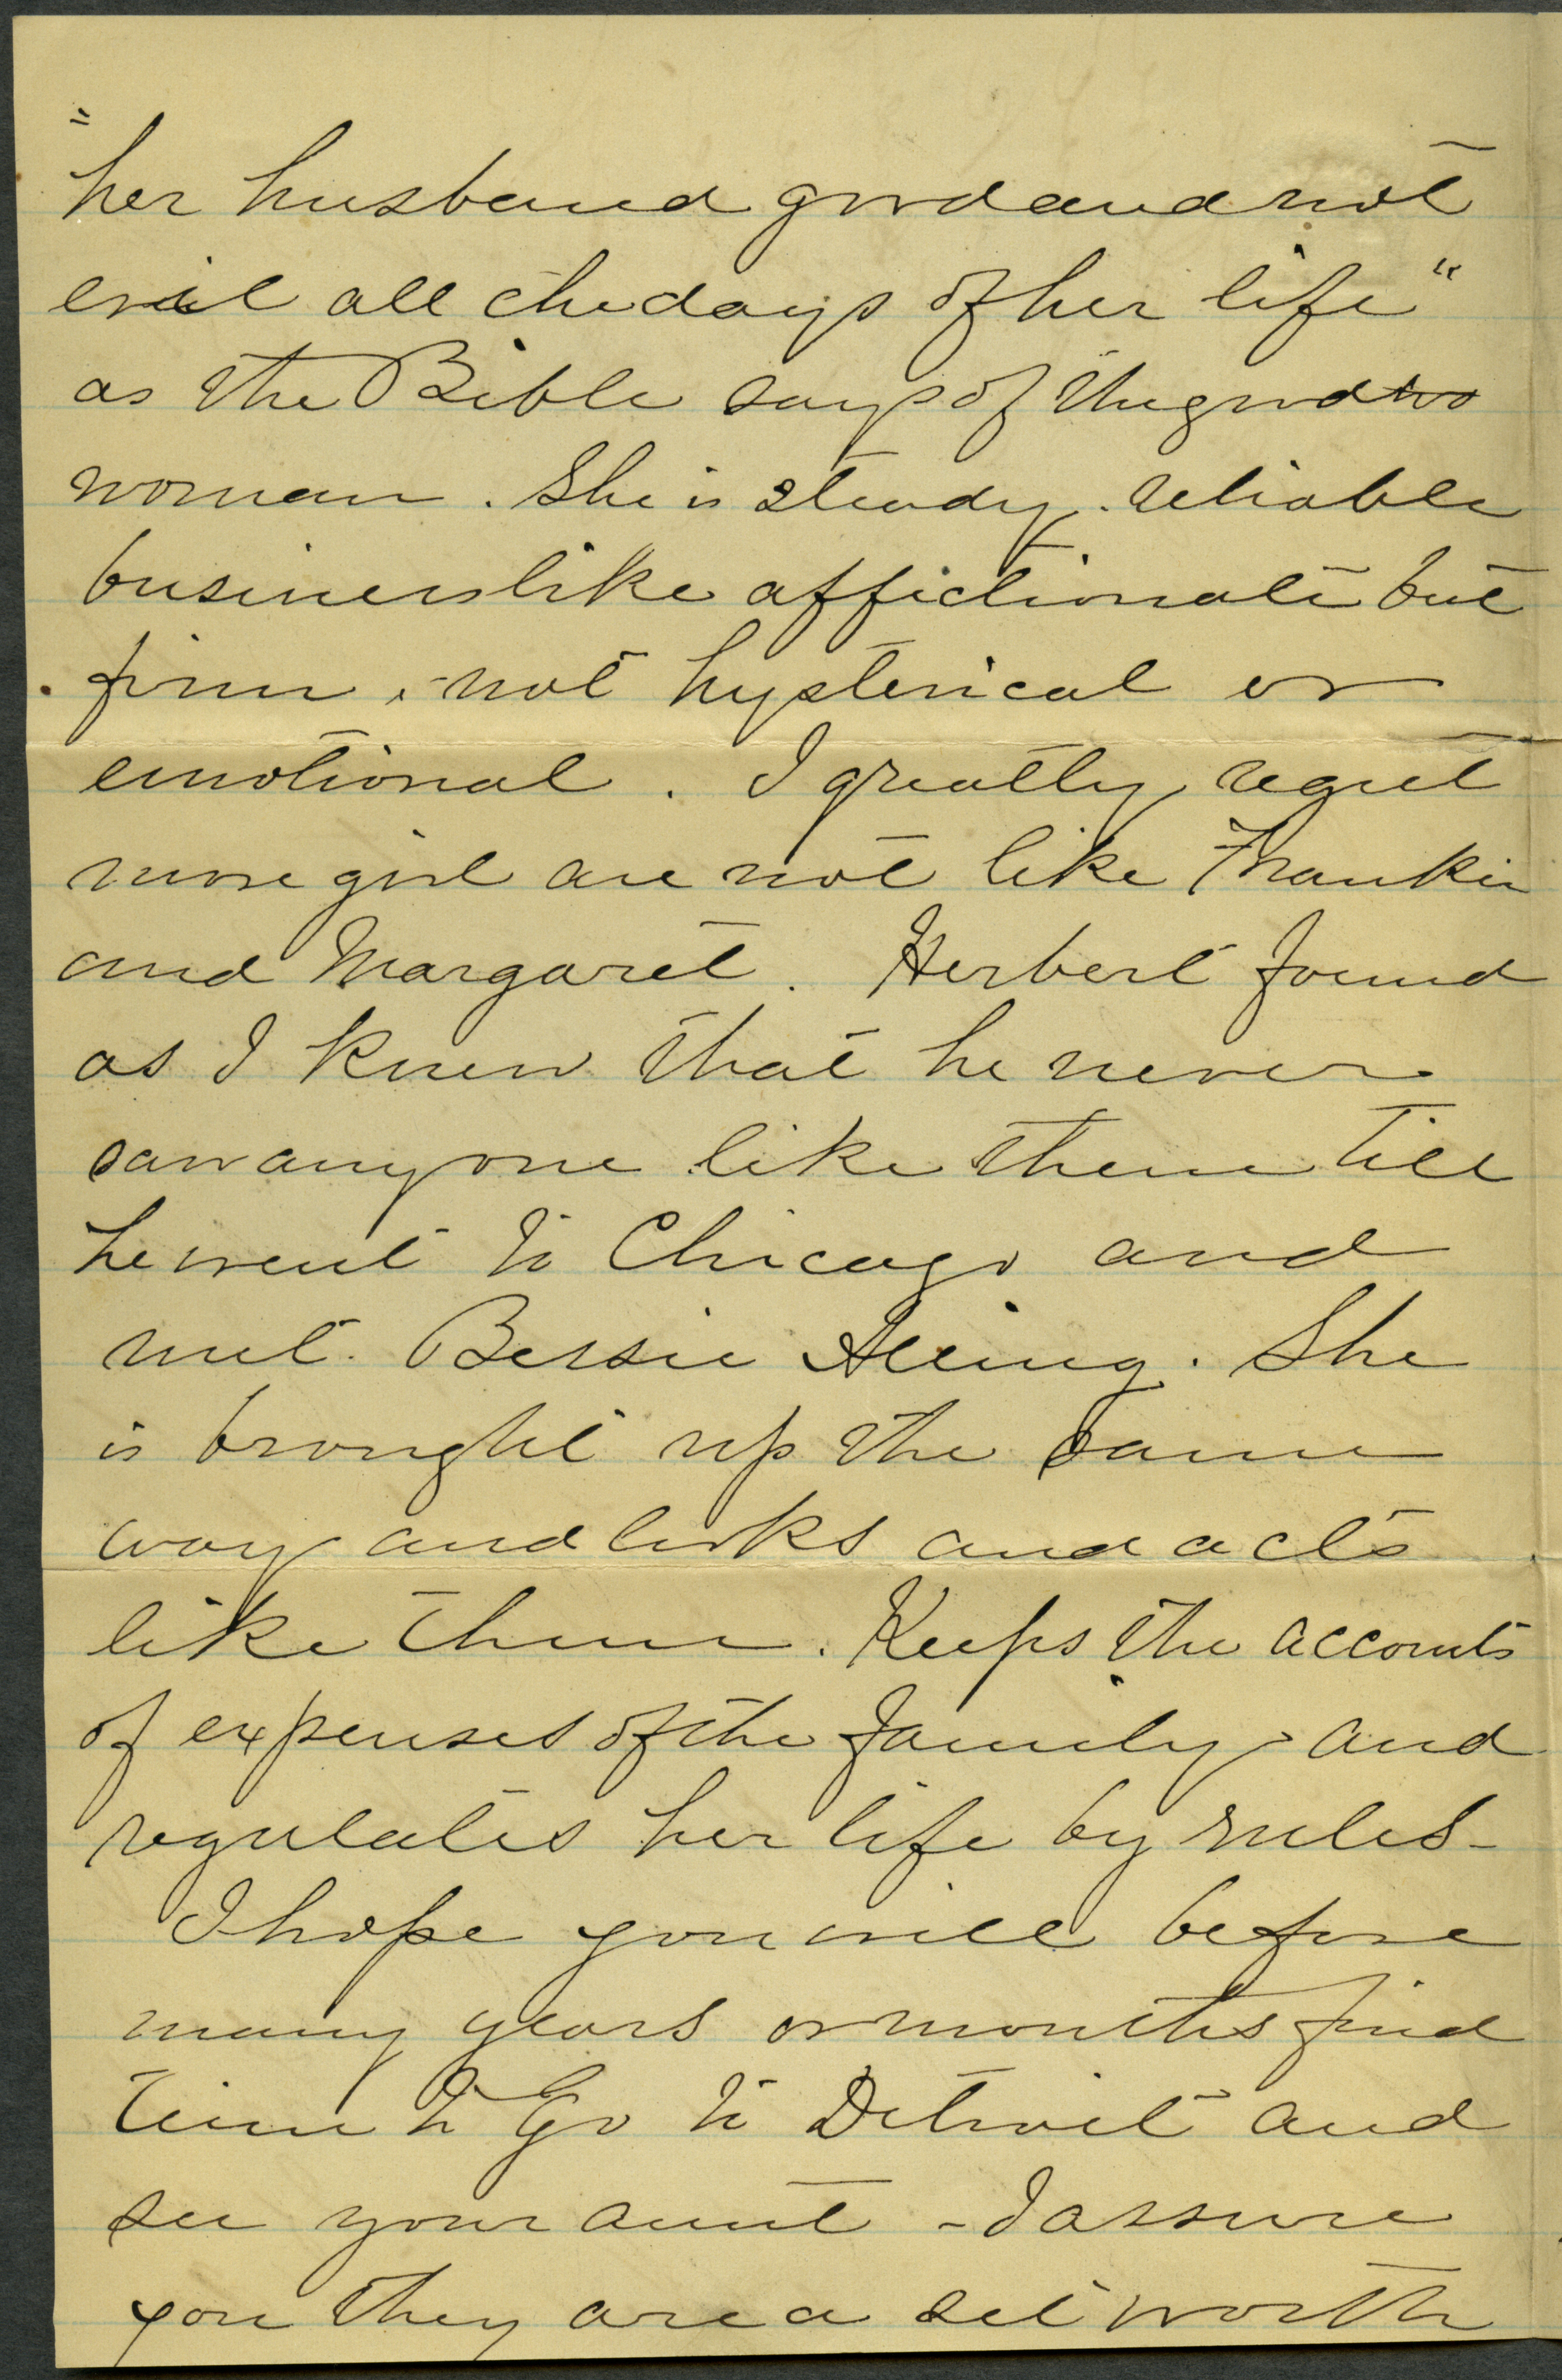 "her husband good and not
evil all the days of her life"
as the Bible says of the good wo
woman. She is steady. reliable
businesslike affectionate but
firm, not hysterical or
emotional. I greatly regret
more girl are not like Frankie
and Margaret. Herbert found
as I knew that he never
saw any one like them till
he went to Chicago and
met Bessie. She
is brought up the same
way and looks and acts
like them. Keeps the accounts
of expenses of the family and
regulates her life by rules-
I hope you will before
many years or months find
time to Go to Detroit and
see your aunt - I assure
you they are a set worth